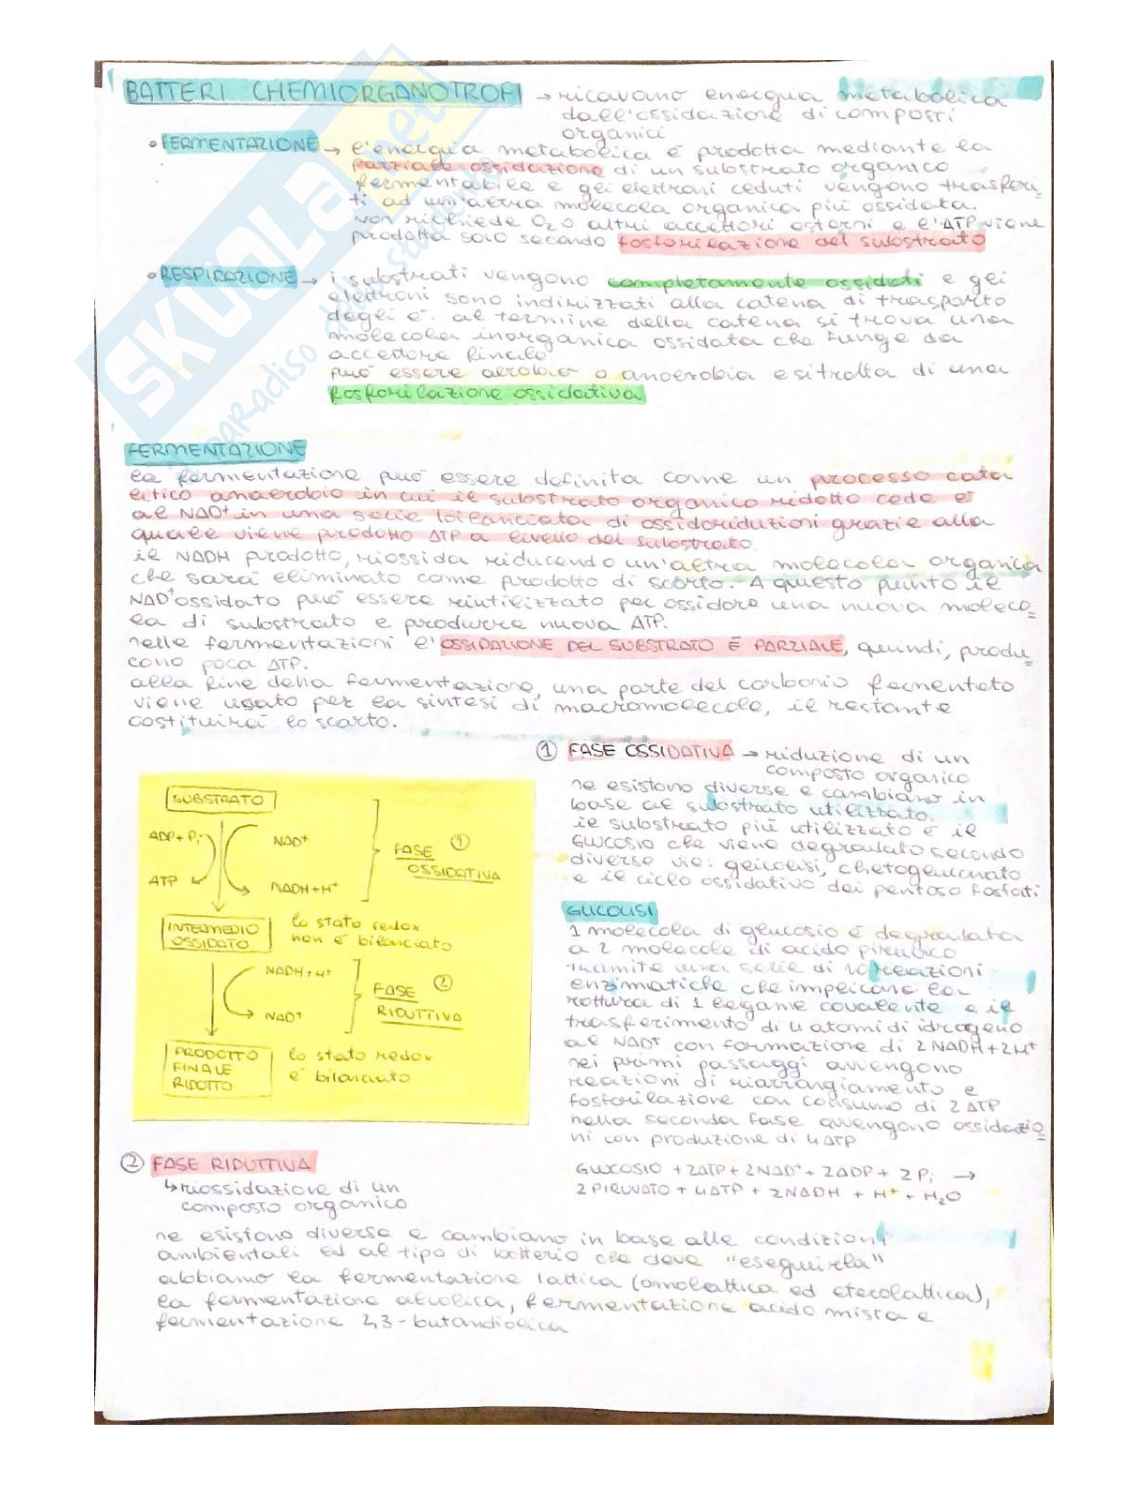 BATTERI CHEMIORGANOTROFI → ricavano energia metabolica
dall'ossidazione di composti
organici
• FERMENTAZIONE → l'energia metabolica è prodotta mediante la
parziale ossidazione di un substrato organico
fermentabile e gli elettroni ceduti vengono trasferi-
ti ad un'altra molecola organica più ossidata.
non richiede O2 o altri accettori esterni e l'ATP viene
prodotta solo secondo fosforilazione del substrato
• RESPIRAZIONE → i substrati vengono completamente ossidati e gli
elettroni sono indirizzati alla catena di trasporto
degli e⁻. al termine della catena si trova una
molecola inorganica ossidata che funge da
accettore finale
può essere aerobia o anaerobia e si tratta di una
fosforilazione ossidativa
FERMENTAZIONE
la fermentazione può essere definita come un processo cata
litico anaerobio in cui il substrato organico ridotto cede e⁻
al NAD⁺ in una serie bilanciata di ossidoriduzioni grazie alla
quale viene prodotto ATP a livello del substrato.
il NADH prodotto, riossida riducendo un'altra molecola organica
che sarà eliminato come prodotto di scarto. A questo punto il
NAD⁺ ossidato può essere riutilizzato per ossidare una nuova moleco=
la di substrato e produrre nuova ATP.
nelle fermentazioni l'OSSIDAZIONE DEL SUBSTRATO È PARZIALE, quindi, produ=
cono poca ATP.
alla fine della fermentazione, una parte del carbonio fermentato
viene usato per la sintesi di macromolecole, il restante
costituirà lo scarto.
① FASE OSSIDATIVA → riduzione di un
composto organico
ne esistono diverse e cambiano in
base al substrato utilizzato.
il substrato più utilizzato è il
GLUCOSIO che viene degradato secondo
diverse vie: glicolisi, chetogluconato
e il ciclo ossidativo dei pentoso fosfati
GLICOLISI
1 molecola di glucosio è degradata
a 2 molecole di acido piruvico
tramite una serie di 10 reazioni
enzimatiche che implicano la
rottura di 1 legame covalente e il
trasferimento di 4 atomi di idrogeno
al NAD⁺ con formazione di 2NADH+2H⁺
nei primi passaggi avvengono
reazioni di riarrangiamento e
fosforilazione con consumo di 2 ATP
nella seconda fase avvengono ossidazio=
ni con produzione di 4 ATP
GLUCOSIO + 2ATP + 2NAD⁺ + 2ADP + 2Pi →
2 PIRUVATO + 4ATP + 2NADH + H⁺ + H2O
SUBSTRATO
ADP+Pi
NAD⁺
ATP
NADH+H⁺
FASE ①
OSSIDATIVA
INTERMEDIO
OSSIDATO
lo stato redox
non è bilanciato
NADH+H⁺
NAD⁺
FASE ②
RIDUTTIVA
PRODOTTO
FINALE
RIDOTTO
lo stato redox
è bilanciato
② FASE RIDUTTIVA
↳ riossidazione di un
composto organico
ne esistono diverse e cambiano in base alle condizioni
ambientali ed al tipo di batterio che deve "eseguirla"
abbiamo la fermentazione lattica (omolattica ed eterolattica),
la fermentazione alcolica, fermentazione acido mista e
fermentazione 2,3-butandiolica
SKUOLA.net